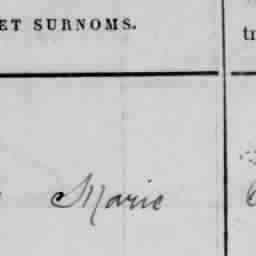 ET SURNOMS. tr
Marie